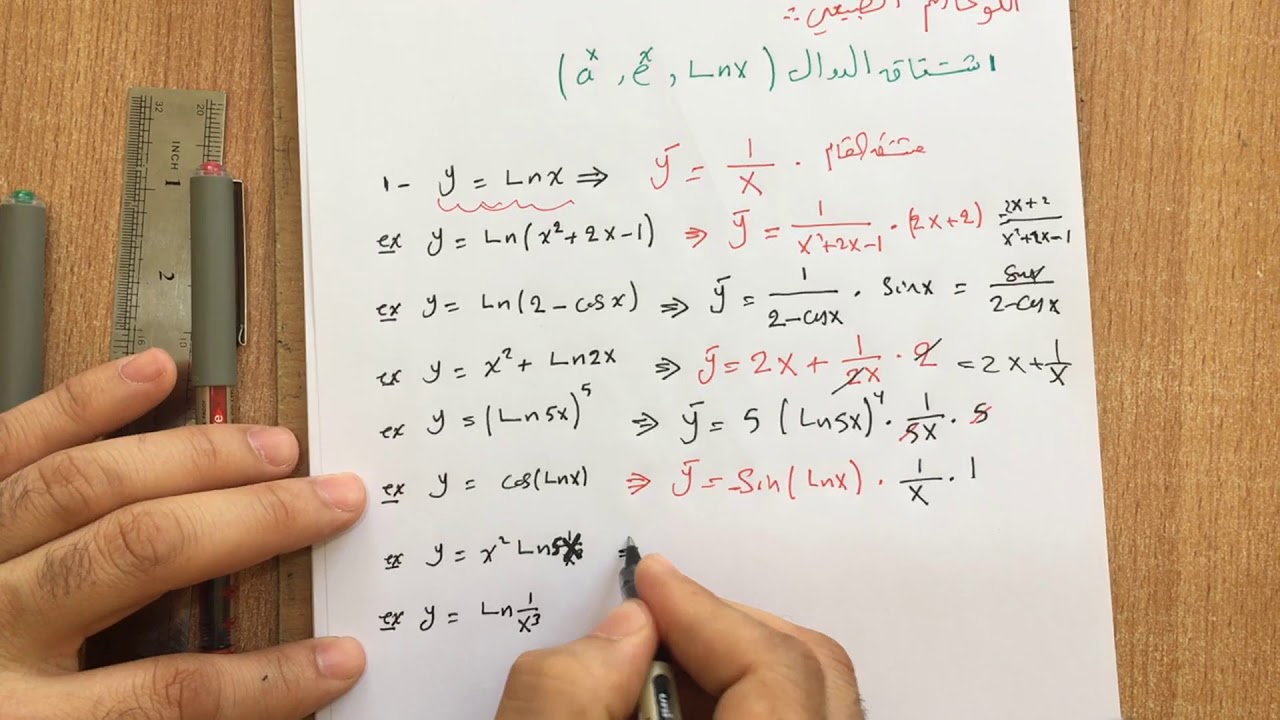 اللوغارتم الطبيعي ::
اشتقاق الدوال (a^x , e^x , Lnx)
1- y = Lnx ⇒ ȳ = 1/x . مشتقة المقام
ex y = Ln(x²+2x-1) ⇒ ȳ = 1/(x²+2x-1) . (2x+2) = (2x+2)/(x²+2x-1)
ex y = Ln(2-cosx) ⇒ ȳ = 1/(2-cosx) . sinx = sinx/(2-cosx)
ex y = x² + Ln2x ⇒ ȳ = 2x + 1/2x . 2 = 2x + 1/x
ex y = (Ln5x)⁵ ⇒ ȳ = 5 (Ln5x)⁴ . 1/5x . 5
ex y = cos(Lnx) ⇒ ȳ = -sin(Lnx) . 1/x . 1
ex y = x² Ln5x =
ex y = Ln 1/x³
INCH
1
2
32
20
10
uni